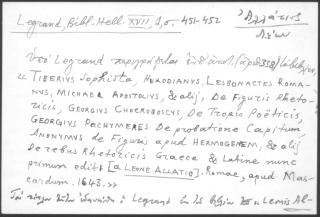 Legrand, Bibl. Hell. XVII, 1, σ. 451-452
Ἀλλάτιος
Λέων
Ὑπὸ Legrand περιγράφεται
« TIBERIUS Sophista, HERODIANUS, LESBONACTES ROMA-
NUS, MICHAEL APOSTOLIUS, & alij, De Figuris Rheto-
ricis, GEORGIUS CHOEROBOSCUS, De Tropis Poëticis,
GEORGIUS PACHYMERES De probatione Capitum
ANONYMUS de Figuris apud HERMOGENEM, & alij
De rebus Rhetoricis Graece & Latine nunc
primum editi [a LEONE ALLATIO]. Romae, apud Mas-
cardum. 1643. »
Legrand ἐν τῷ βιβλίῳ τοῦ «Lemis Al-